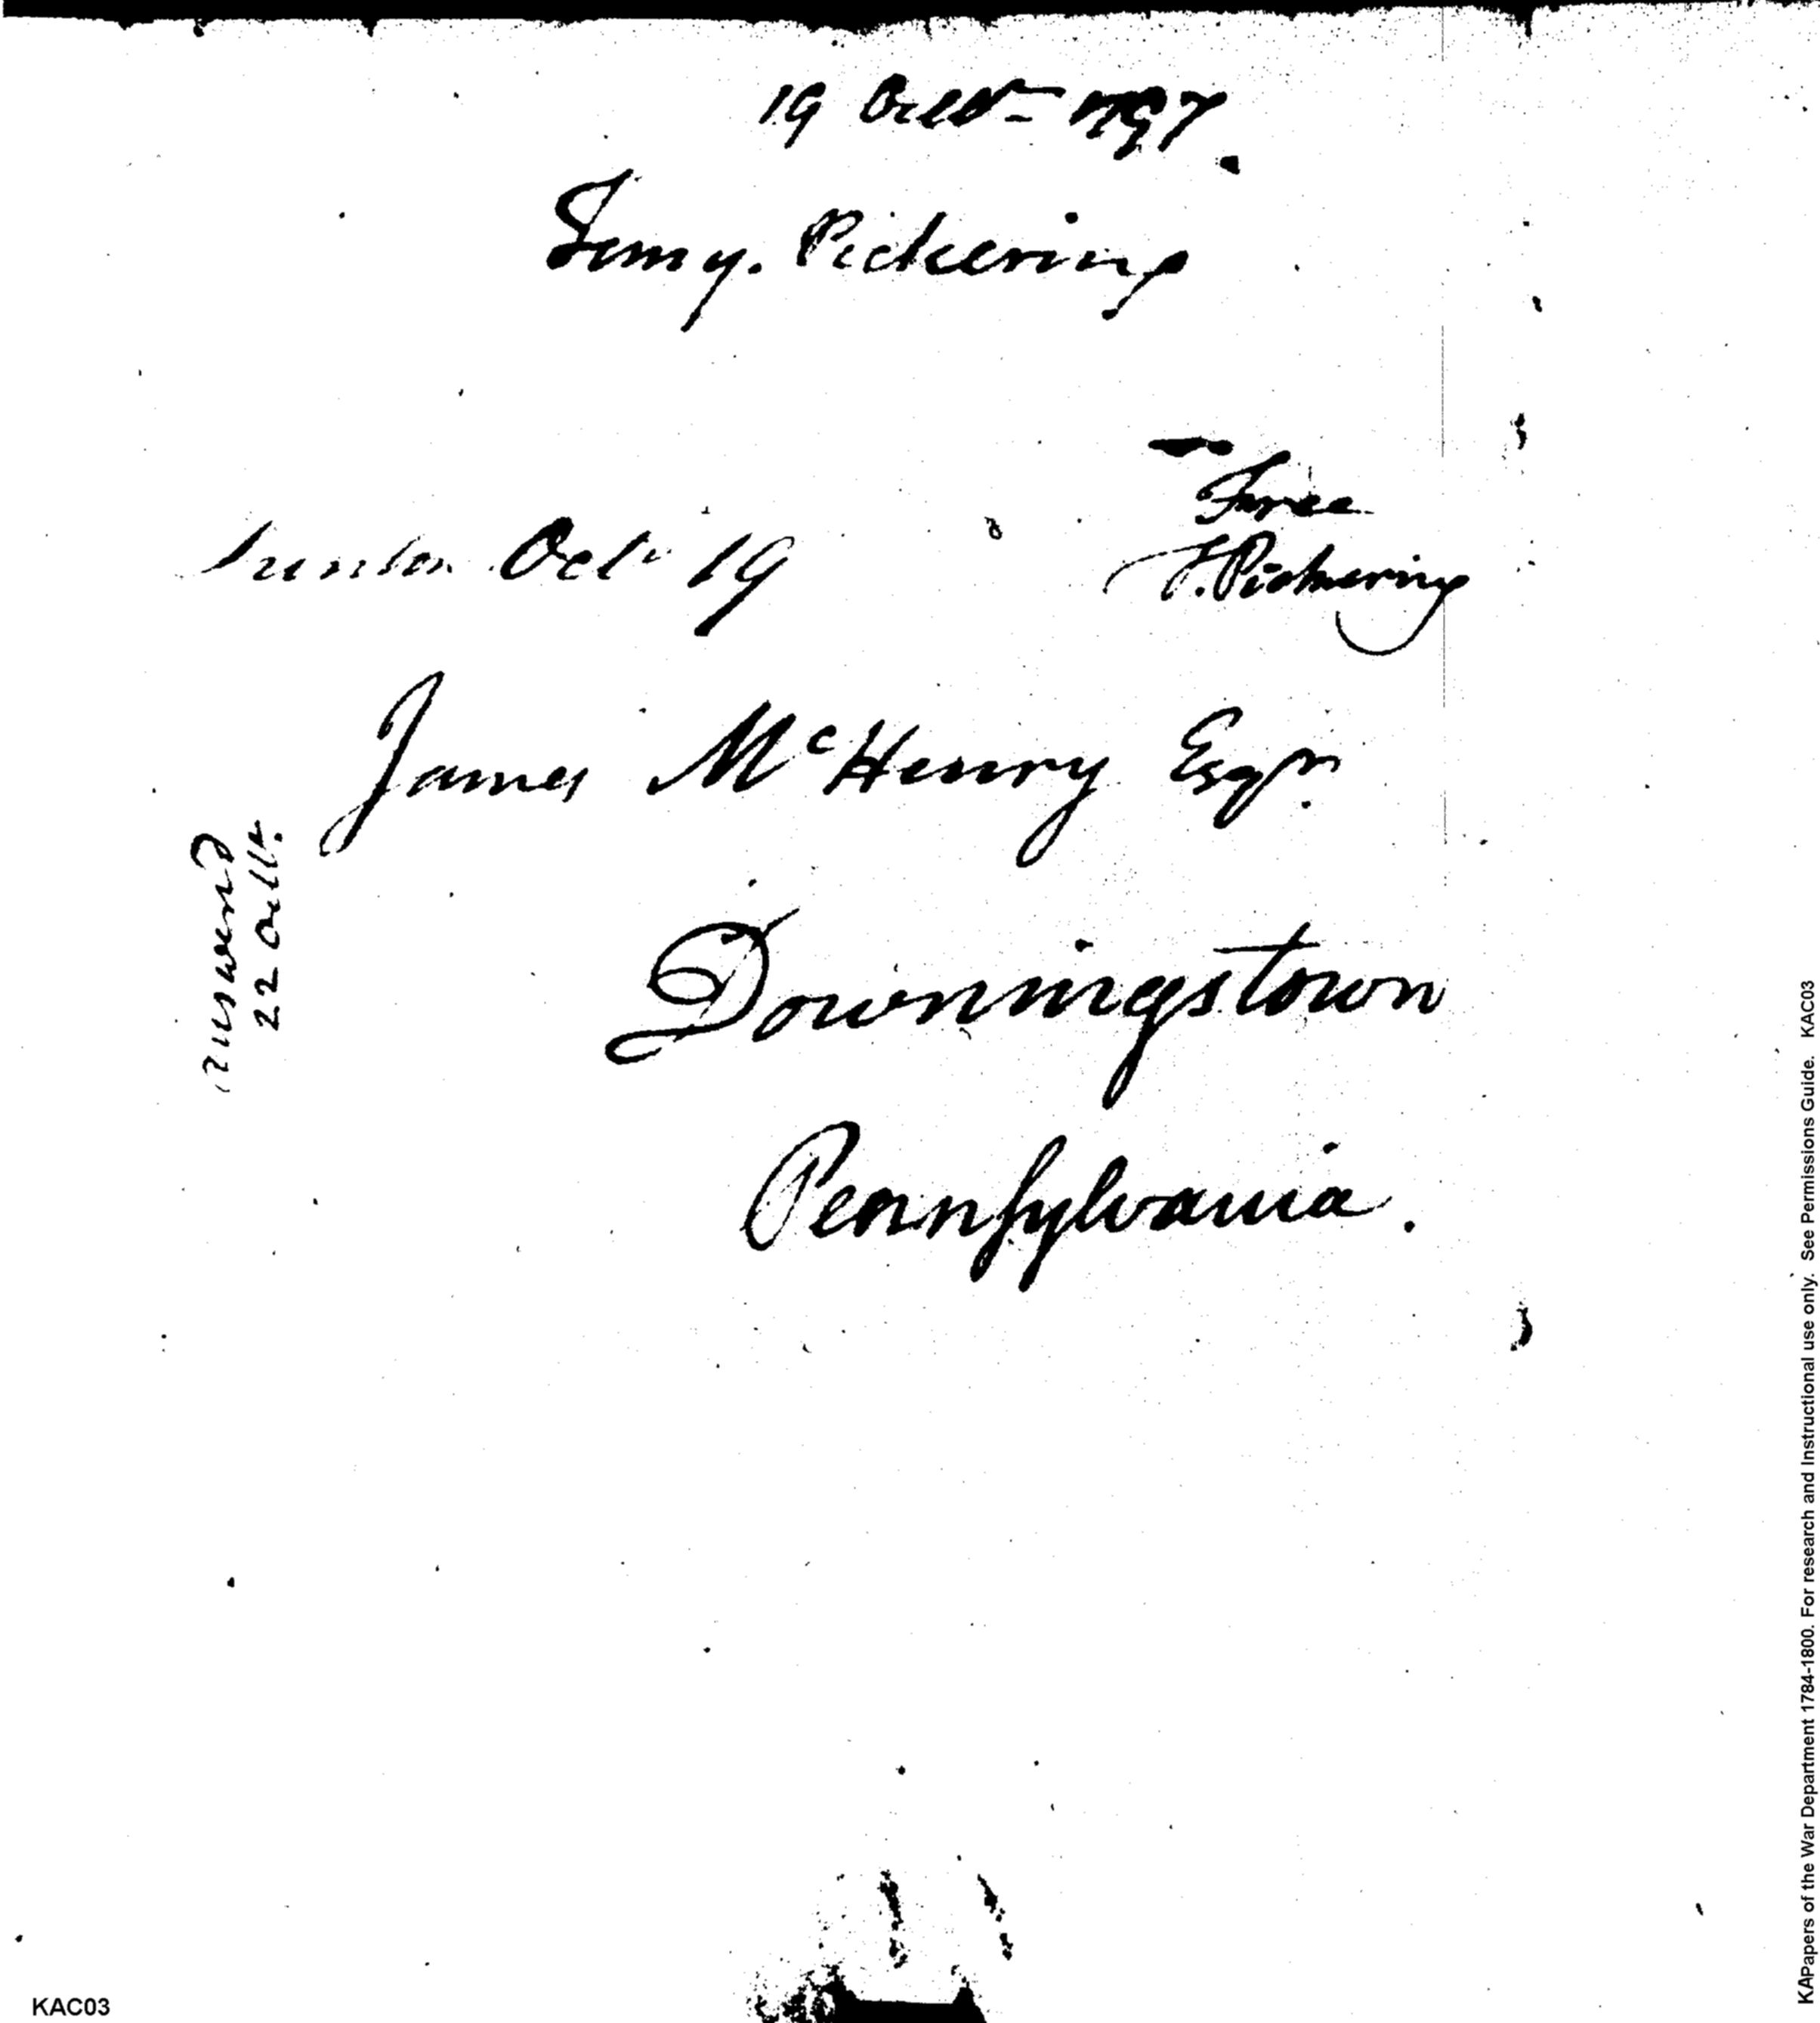 19 Octbr 1797
Timy. Pickering
Free
Trenton Octr 19
T. Pickering
James McHenry Esqr.
answerd
22 Octr.
Downingstown
Pennsylvania.
KAC03
KAPapers of the War Department 1784-1800. For research and Instructional use only. See Permissions Guide. KAC03